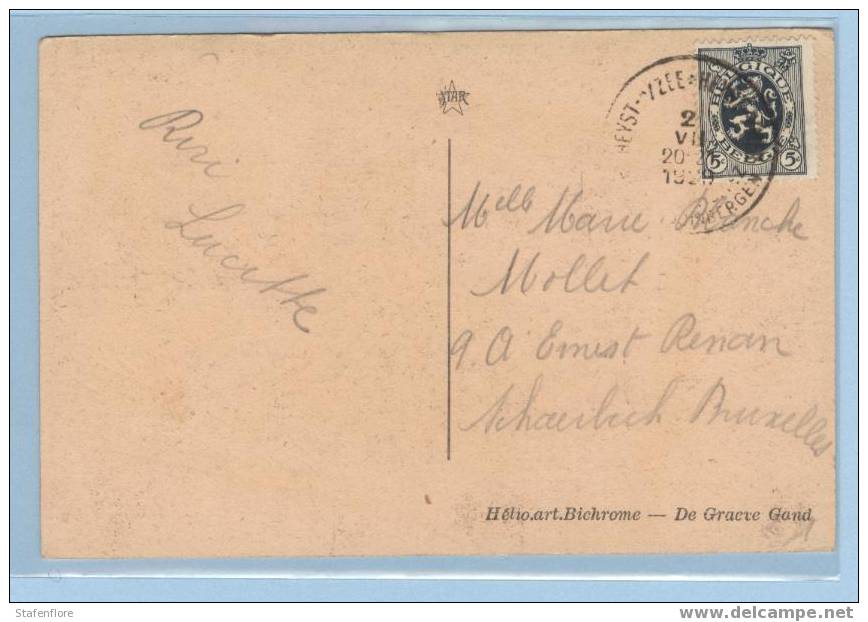 STAR
Riri
Lucette
HEYST-s/ZEE * HE
2
VII
20-2
1929
BERGEN
BELGIQUE
BELGIË
5c 5c
Melle Marie Blanche
Mollet
9. A Ernest Renan
Schaerbeek Bruxelles
Hélio.art.Bichrome — De Graeve Gand
Stafenflore
www.delcampe.net